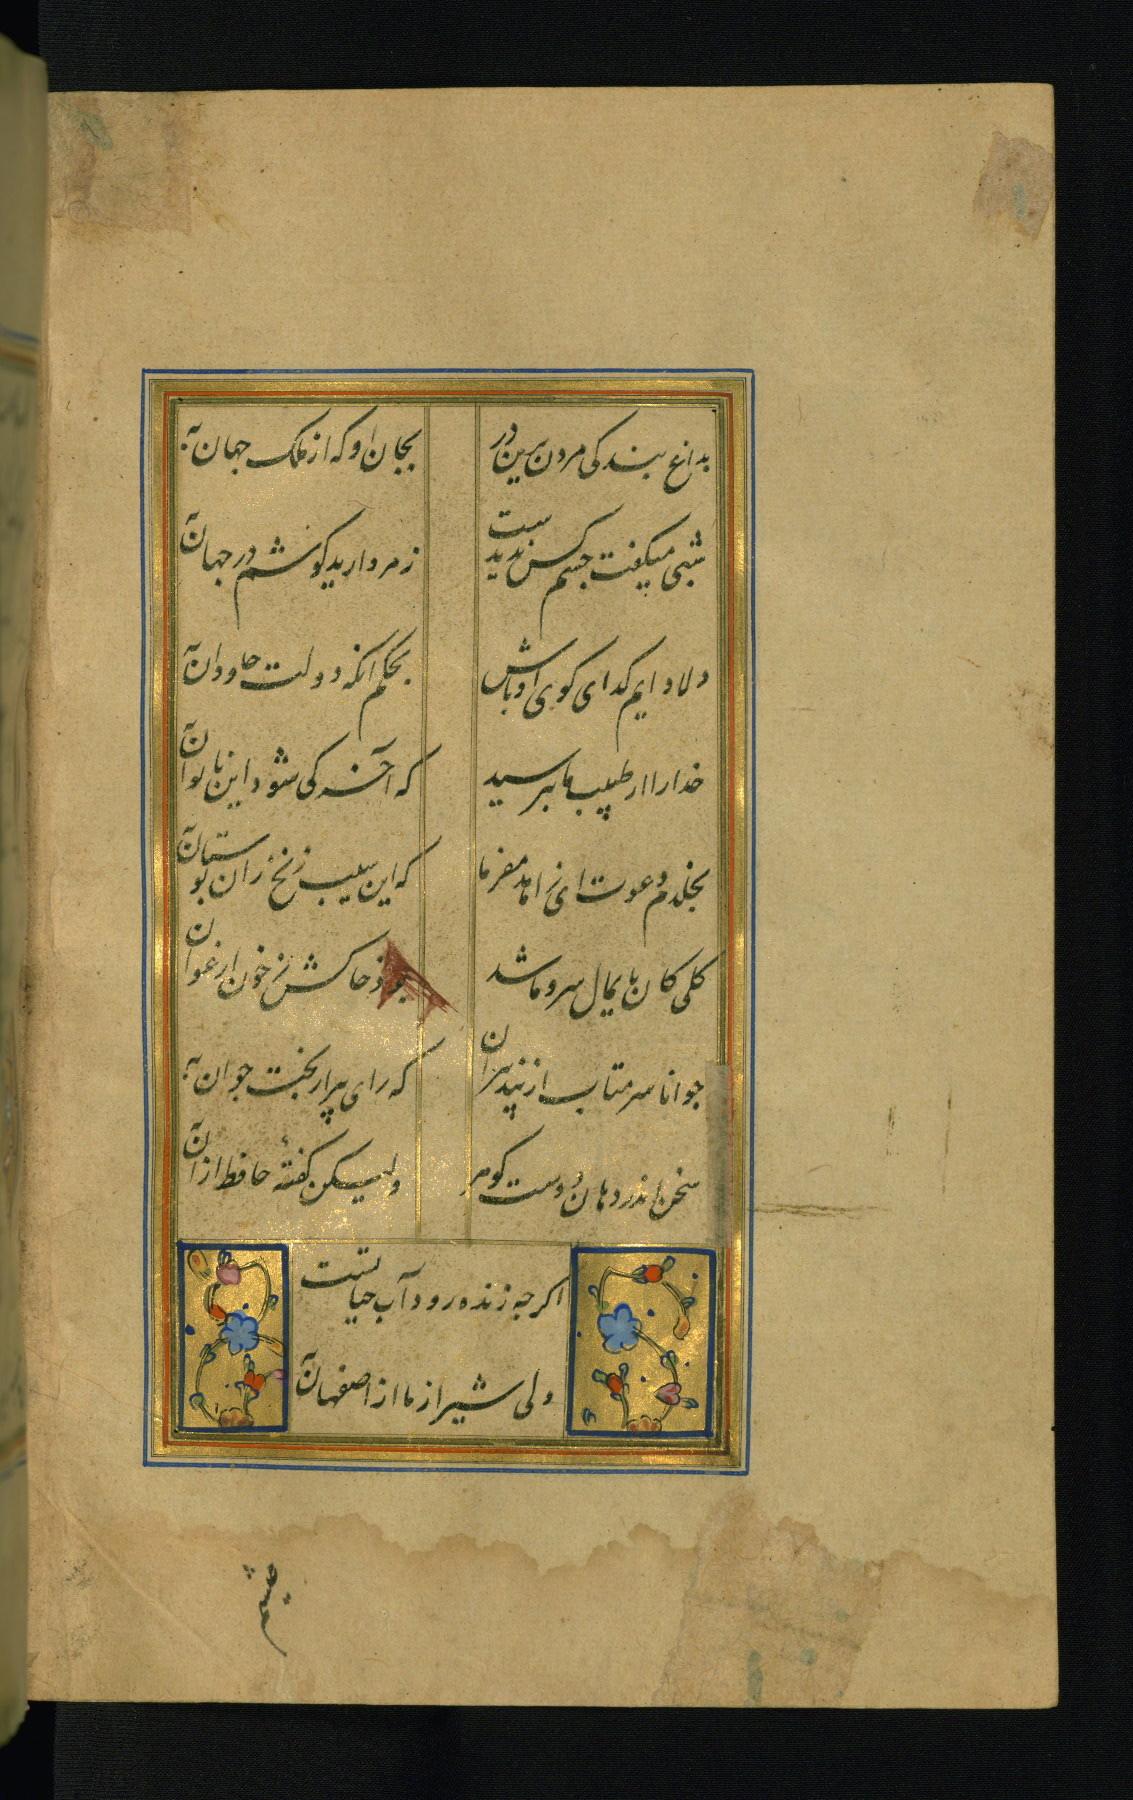 بداغ بندکی مردن برین در بجان او که از ملک جهان به
شبی میکفت چشم کس ندیدست ز مروارید کوشم در جهان به
دلا دایم کدای کوی او باش بحکم آنکه دولت جاودان به
خدارا از طبیب ما بپرسید که آخر کی شود این ناتوان به
بخلدم دعوت ای زاهد مفرما که این سیب زنخ زان بوستان به
کلی کان پایمال سرو ما شد بود خاکش ز خون ارغوان به
جوانا سر متاب از پند پیران که رای پیر از بخت جوان به
سخن اندر دهان دوست کوهر ولیکن کفتهٔ حافظ از آن به
اکرچه زنده رود آب حیاتست
ولی شیراز ما از اصفهان به